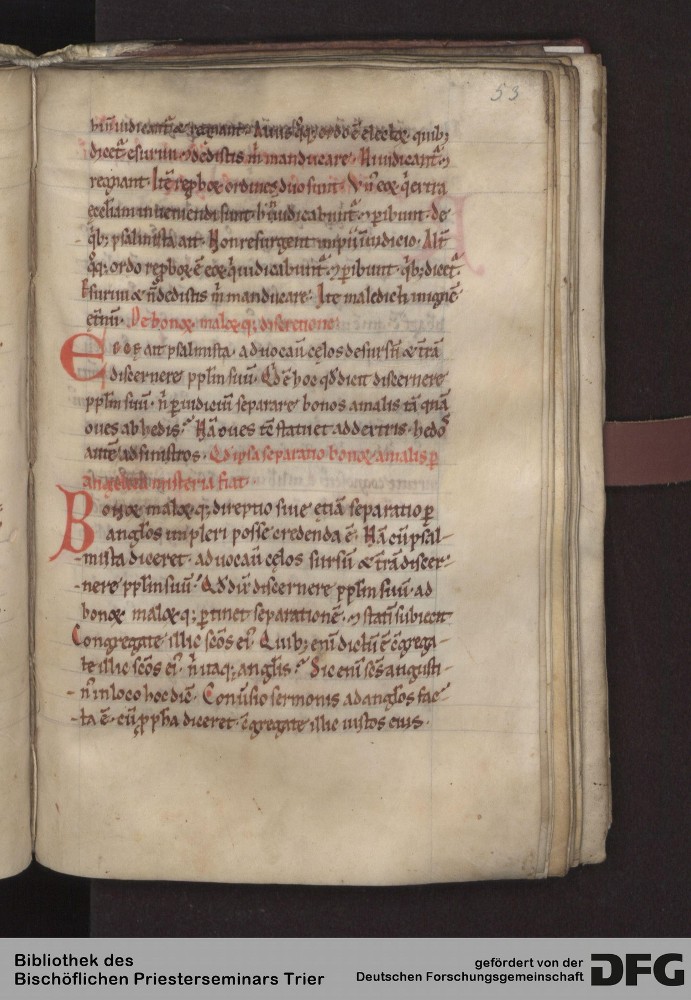 53
diect᷑ esuriui ⁊ dedistis m̄ manducare. N̄ iudicant᷑ ⁊
regnant. Ite rep̄boꝝ ordines duo sunt. Vn̄ eoꝝ q̄ extra
ecc̄liam inueniendi sunt. hīi iudicabunt᷑. ⁊ ꝑibunt. de
q̄b; psalmista ait. Non resurgent impii in iudicio. Alt̄
q̄q; ordo rep̄boꝝ ē eoꝝ q̄ iudicabunt᷑. ⁊ ꝑibunt. q̄b; dicet᷑.
Esuriui ⁊ n̄ dedistis m̄ manducare. Ite maledicti in ignē
et̄nū. De bonoꝝ maloꝝq; discretione.
ait psalmista. aduocaū cęlos desursū ⁊ t̄rā
discernere pp̄lm suū. Qd̄ ē hoc qd̄ dicit discernere
pp̄lm suū. n̄ ꝑ iudiciū separare bonos a malis tā quā
oues ab hedis. Nā oues tē statuet ad dextris. hedos
autē ad sinistros. Qd̄ ipsa separatio bonoꝝ a malis ꝑ
angelica misteria fiat.
Bonoꝝ maloꝝq; direptio siue etiā separatio ꝑ
anglos impleri posse credenda ē. Nā cū psal-
mista diceret. aduocaū cęlos sursū ⁊ t̄rā discer-
nere pp̄lm suū. Qd̄ dix̄ discernere pp̄lm suū. ad
bonoꝝ maloꝝq; ꝑtinet separationē. ⁊ statī subiecit
Congregate illic sc̄os ei᷒. Quib; enī dictū ē c̄grega-
te illic sc̄os ei᷒. n̄ itaq; anglis. Sic enī sc̄s augusti-
n᷒ in loco hoc dic̄. Conuersio sermonis ad anglos fac-
ta ē. cū ꝓph̄a diceret. c̄gregate illic iustos eius.
Bibliothek des
Bischöflichen Priesterseminars Trier
gefördert von der
Deutschen Forschungsgemeinschaft
DFG